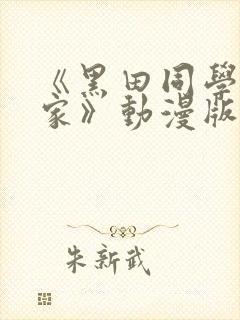 《黑田同學
家》動漫版
朱新武